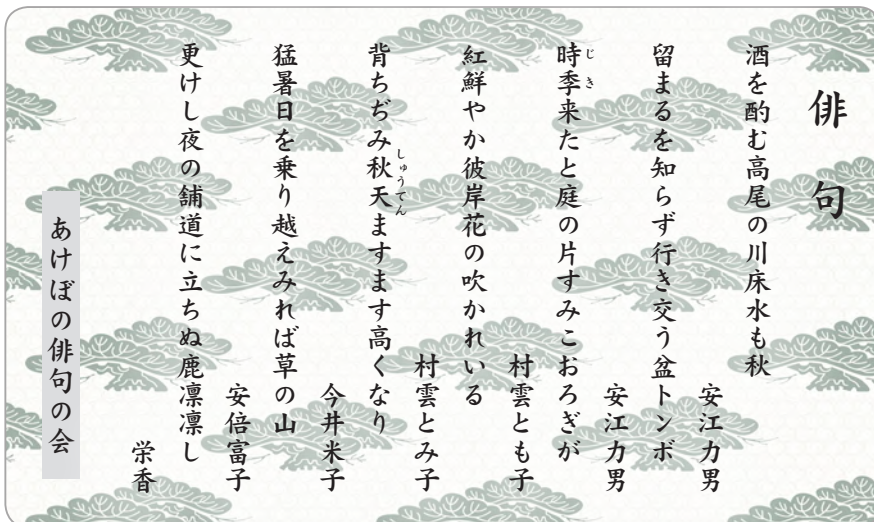 俳句
酒を酌む高尾の川床水も秋
安江力男
留まるを知らず行き交う盆トンボ
安江力男
時季来たと庭の片すみこおろぎが
じき
村雲とも子
紅鮮やか彼岸花の吹かれいる
村雲とみ子
背ちぢみ秋天ますます高くなり
しゅうてん
今井米子
猛暑日を乗り越えみれば草の山
安倍富子
更けし夜の舗道に立ちぬ鹿凛凛し
栄香
あけぼの俳句の会